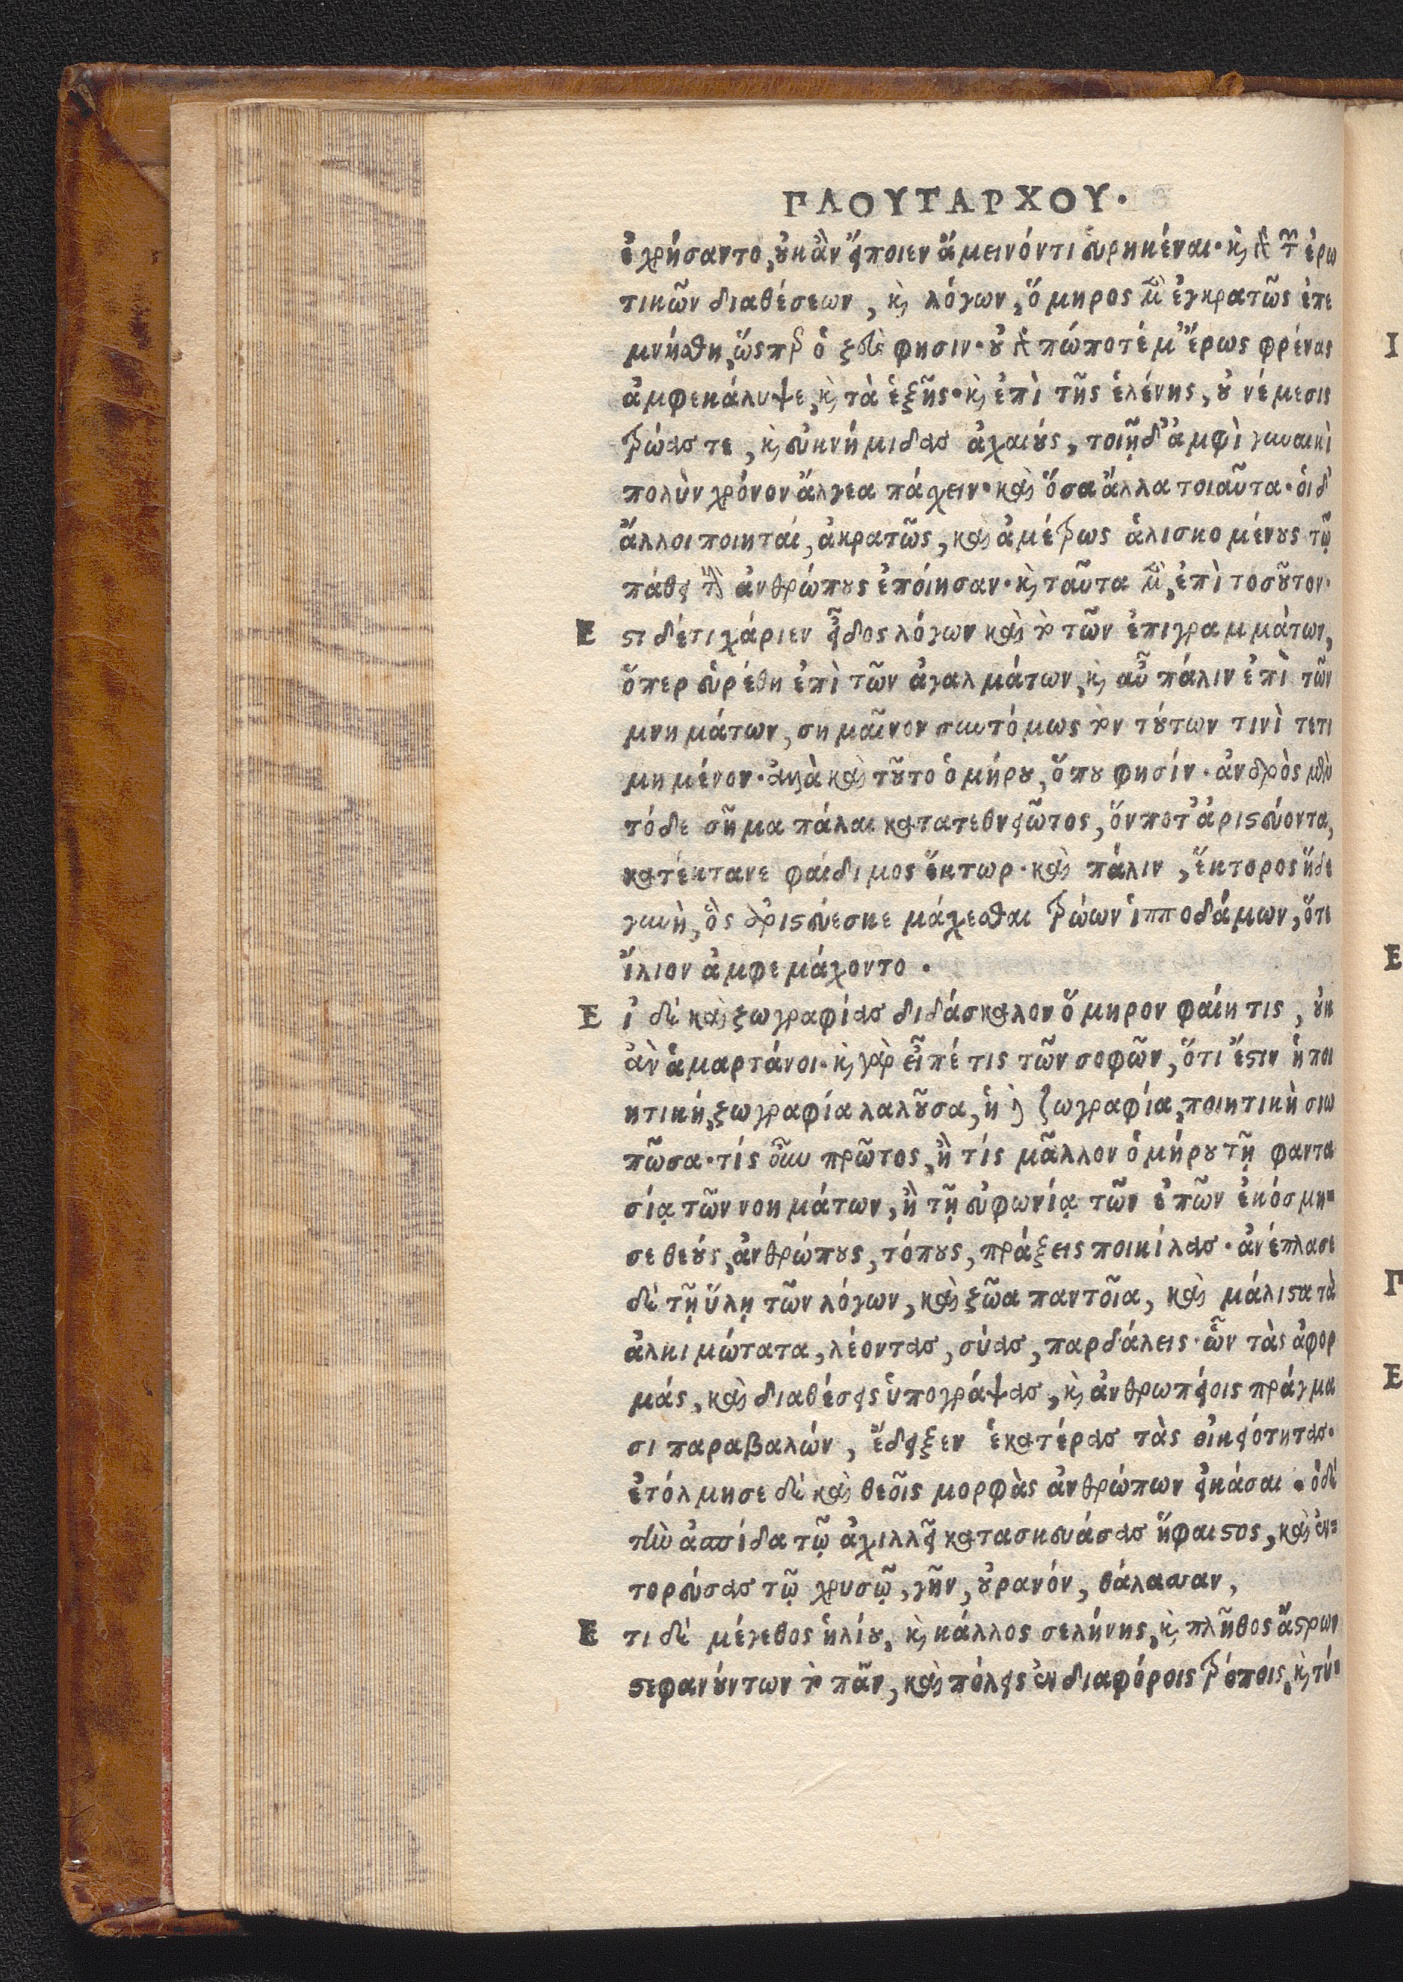 ΠΛΟΥΤΑΡΧΟΥ·
ἐχρήσαντο, οὐκ ἂν εἴποιεν ἄμεινόν τι εὑρηκέναι· καὶ ἐπὶ τῶν ἐρω
τικῶν διαθέσεων, καὶ λόγων, ὅμηρος μὲν ἐγκρατῶς ἐπε
μνήσθη, ὥσπερ ὁ ζεὺς φησιν· οὐ γὰρ πώποτέ μ' ἔρως φρένας
ἀμφεκάλυψε, καὶ τὰ ἑξῆς· καὶ ἐπὶ τῆς ἑλένης, οὐ νέμεσις
τρώας τε, καὶ εὐκνήμιδας ἀχαιούς, τοιῇδ' ἀμφὶ γυναικὶ
πολὺν χρόνον ἄλγεα πάσχειν· καὶ ὅσα ἄλλα τοιαῦτα· οἱ δ'
ἄλλοι ποιηταί, ἀκρατῶς, καὶ ἀμέτρως ἁλισκομένους τῷ
πάθει τοὺς ἀνθρώπους ἐποίησαν· καὶ ταῦτα μὲν, ἐπὶ τοσοῦτον·
Ε στι δέ τι χάριεν εἶδος λόγων καὶ τὸ τῶν ἐπιγραμμάτων,
ὅπερ εὑρέθη ἐπὶ τῶν ἀγαλμάτων, καὶ αὖ πάλιν ἐπὶ τῶν
μνημάτων, σημαῖνον συντόμως τὸν τούτων τινὶ τετι
μημένον· ἀλλὰ καὶ τοῦτο ὁμήρου, ὅπου φησίν· ἀνδρὸς μὲν
τόδε σῆμα πάλαι κατατεθνειῶτος, ὅν ποτ' ἀριστεύοντα,
κατέκτανε φαίδιμος ἕκτωρ· καὶ πάλιν, ἕκτορος ἥδε
γυνὴ, ὃς ἀριστεύεσκε μάχεσθαι τρώων ἱπποδάμων, ὅτε
ἴλιον ἀμφεμάχοντο.
Ε ἰ δὲ καὶ ζωγραφίας διδάσκαλον ὅμηρον φαίη τις, οὐκ
ἂν ἁμαρτάνοι· καὶ γὰρ εἶπέ τις τῶν σοφῶν, ὅτι ἔστιν ἡ ποι
ητική, ζωγραφία λαλοῦσα, ἡ δὲ ζωγραφία, ποιητικὴ σιω
πῶσα· τίς οὖν πρῶτος, ἢ τίς μᾶλλον ὁμήρου τῇ φαντα
σίᾳ τῶν νοημάτων, ἢ τῇ εὐφωνίᾳ τῶν ἐπῶν ἐκόσμη-
σε θεούς, ἀνθρώπους, τόπους, πράξεις ποικίλας· ἀνέπλασε
δὲ τῇ ὕλῃ τῶν λόγων, καὶ ζῶα παντοῖα, καὶ μάλιστα τὰ
ἀλκιμώτατα, λέοντας, σύας, παρδάλεις· ὧν τὰς ἀφορ
μάς, καὶ διαθέσεις ὑπογράψας, καὶ ἀνθρωπείοις πράγμα
σι παραβαλών, ἔδειξεν ἑκατέρας τὰς οἰκειότητας·
ἐτόλμησε δὲ καὶ θεοῖς μορφὰς ἀνθρώπων εἰκάσαι· ὁ δὲ
τὴν ἀσπίδα τῷ ἀχιλλεῖ κατασκευάσας ἥφαιστος, καὶ ἐν-
τορεύσας τῷ χρυσῷ, γῆν, οὐρανόν, θάλασσαν,
Ε τι δὲ μέγεθος ἡλίου, καὶ κάλλος σελήνης, καὶ πλῆθος ἄστρων
στεφανούντων τὸ πᾶν, καὶ πόλεις ἐν διαφόροις τρόποις, καὶ τύ-
Ι
Ε
Γ
Ε